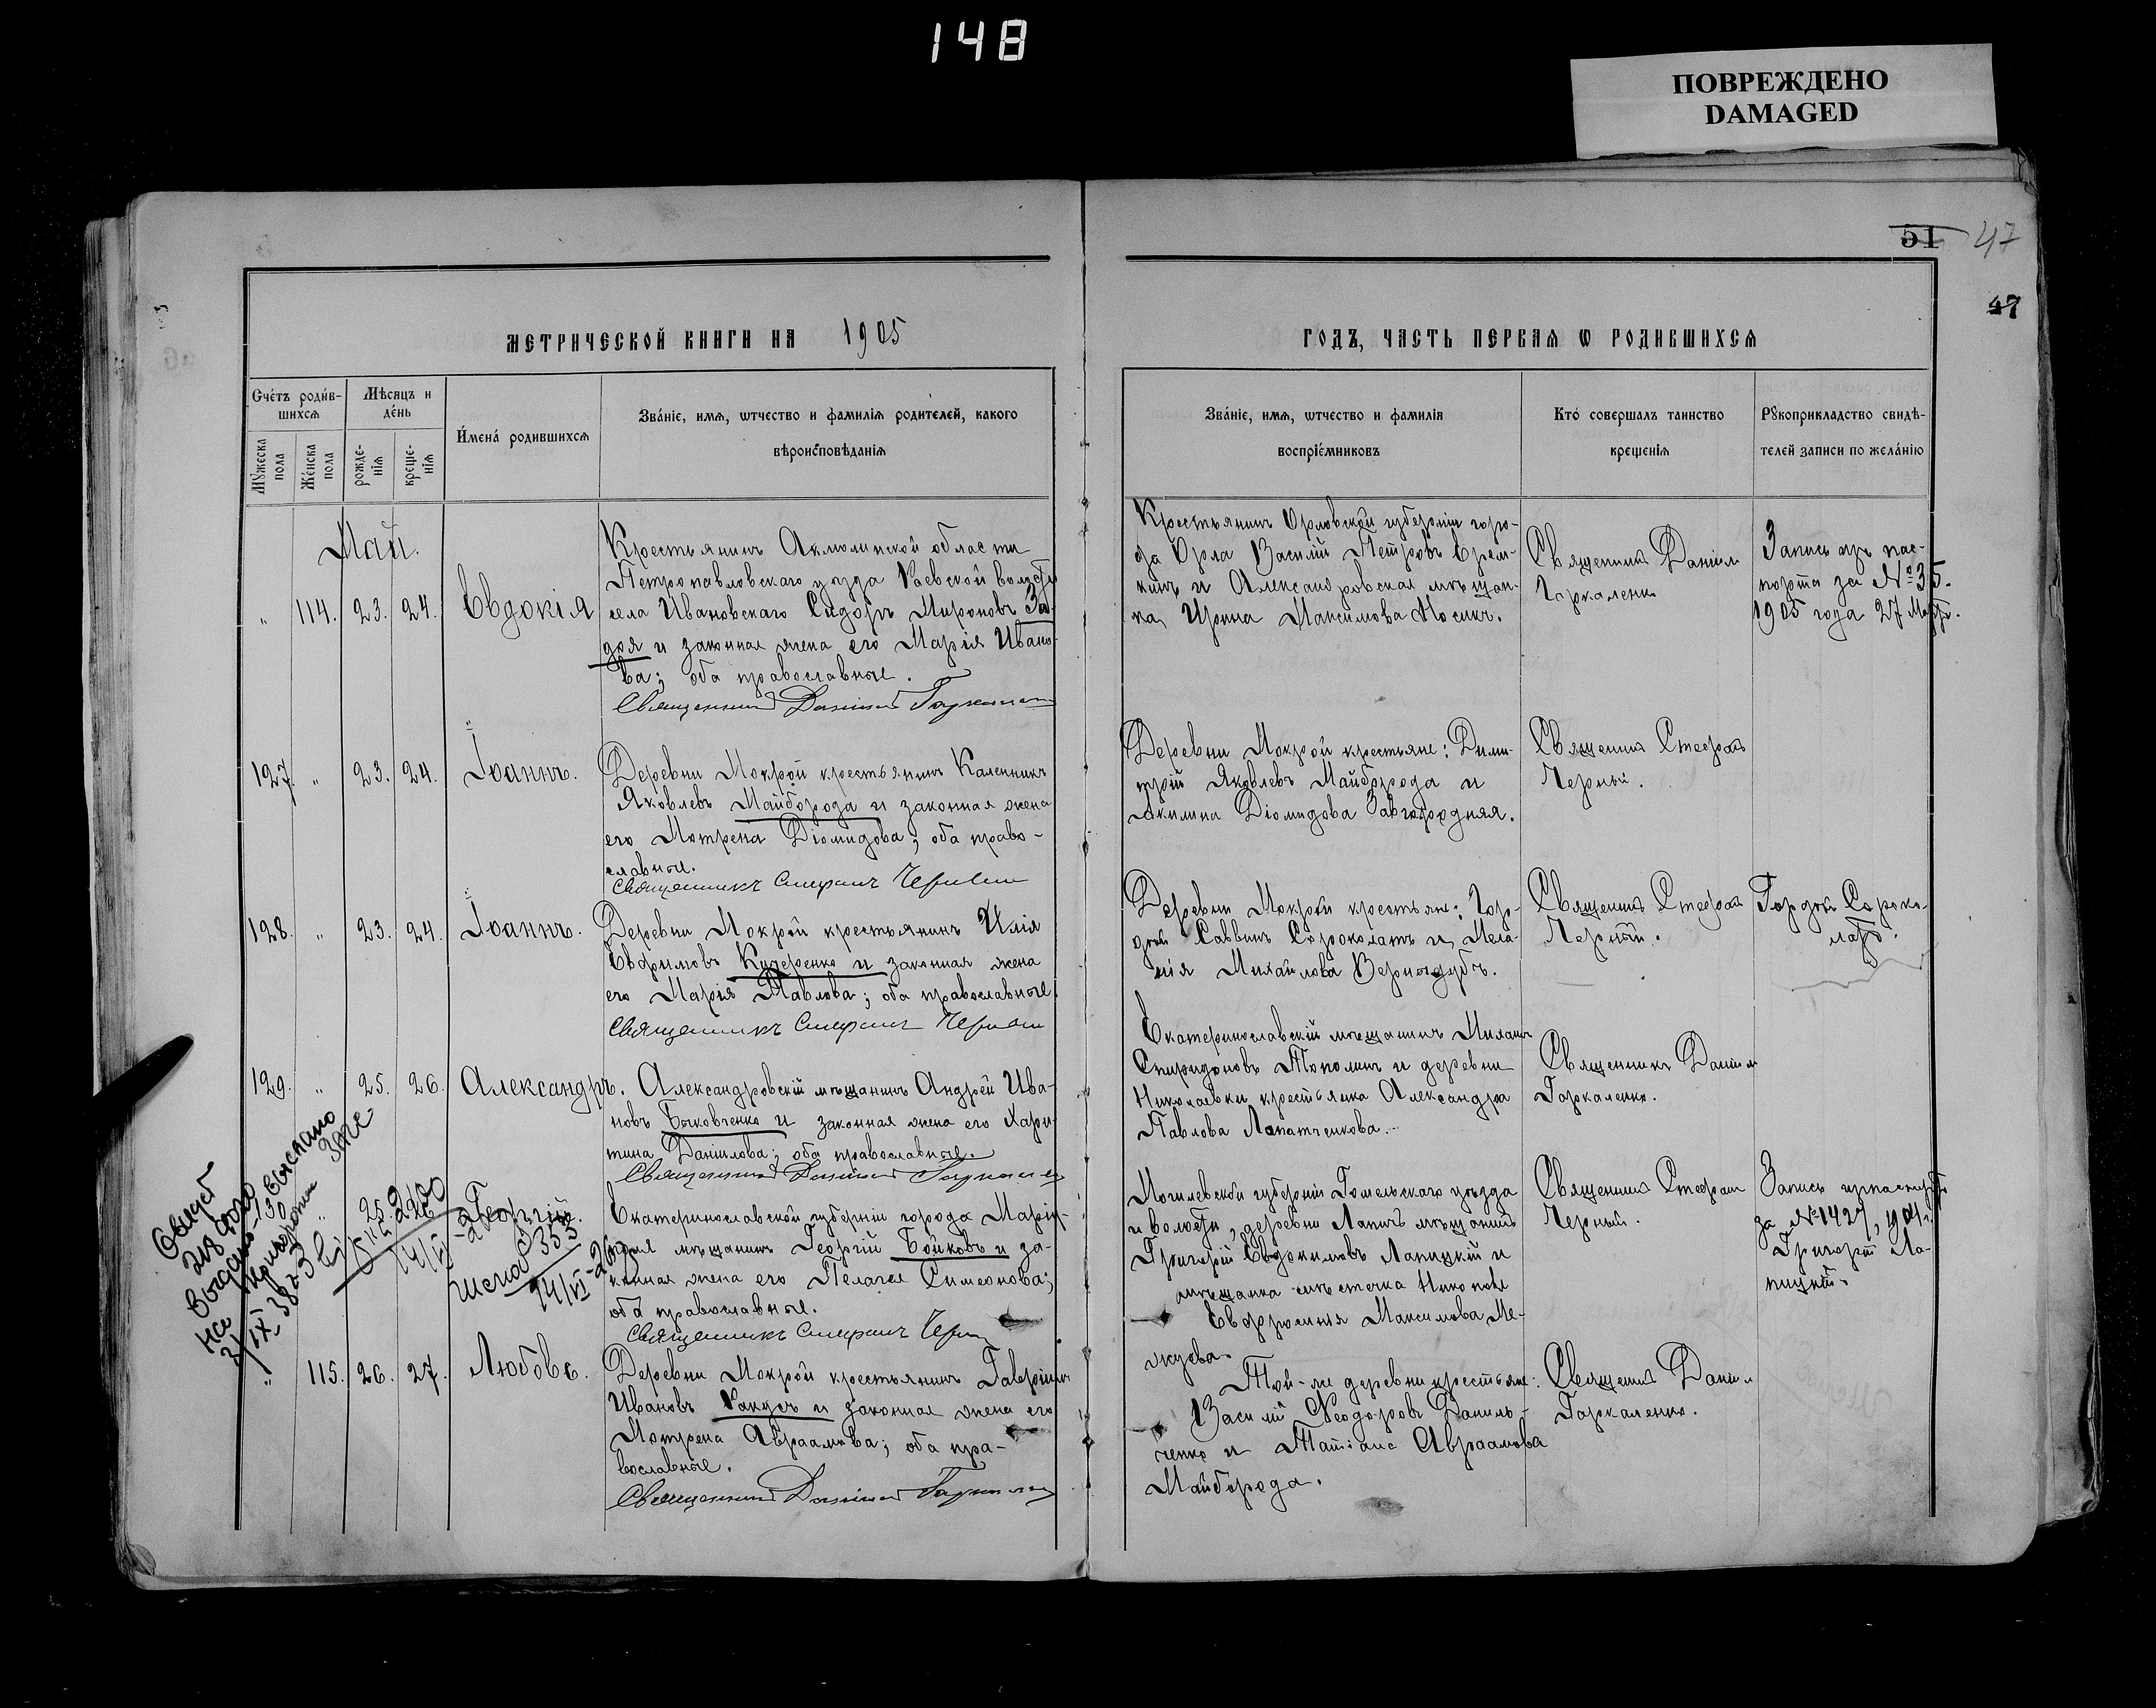 148
ПОВРЕЖДЕНО
DAMAGED
51 47
47
МЕТРИЧЕСКОЙ КНИГИ НА 1905
ГОДЪ, ЧАСТЬ ПЕРВАЯ Ѡ РОДИВШИХСЯ
Счетъ родив-
шихся
Мѣсяцъ и
день
Мужеска
пола
Женска
пола
рожде-
нія
креще-
нія
Имена родившихся
Званіе, имя, ѡтчество и фамилія родителей, какого
вѣроисповѣданія
Званіе, имя, ѡтчество и фамилія
воспріемниковъ
Кто совершалъ таинство
крещенія
Рукоприкладство свидѣ-
телей записи по желанію
Май.
„ 114. 23. 24. Евдокія
Крестьянинъ Акмолинской области
Петропавловскаго уѣзда Раевской волости
села Ивановскаго Сидоръ Мироновъ За-
доя и законная жена его Марія Ивано-
ва; оба православные.
Священникъ Даніилъ Гаркаленко
Крестьянинъ Орловской губерніи горо-
да Орла Василій Петровъ Ерем-
кинъ и Александровская мѣщан-
ка, Ирина Максимова Носикъ.
Священникъ Даніилъ
Гаркаленко
Запись изъ пас-
порта за № 35.
1905 года 27 Мар.
127. „ 23. 24. Іоаннъ.
Деревни Мокрой крестьянинъ Каленникъ
Яковлевъ Майборода и законная жена
его Мотрена Діомидова; оба право-
славные.
Священникъ Стефанъ Черный
Деревни Мокрой крестьяне: Дими-
трій Яковлевъ Майборода и
Акилина Діомидова Завгородняя.
Священникъ Стефанъ
Черный.
128. „ 23. 24. Іоаннъ.
Деревни Мокрой крестьянинъ Илія
Евфимовъ Кучеренко и законная жена
его Марія Павлова; оба православные.
Священникъ Стефанъ Черный
Деревни Мокрой крестьяне: Гор-
дій Саввинъ Сороколатъ и Мела-
нія Михайлова Вернидубъ.
Священникъ Стефанъ
Черный.
Гордій Сороко-
латъ.
129. „ 25. 26. Александръ.
Александровскій мѣщанинъ Андрей Ива-
новъ Быковченко и законная жена его Хари-
тина Даніилова; оба православные.
Священникъ Даніилъ Гаркаленко
Екатеринославскій мѣщанинъ Миланъ
Спиридоновъ Тополинъ и деревни
Николаевки крестьянка Александра
Павлова Лопатченкова.
Священникъ Даніилъ
Гаркаленко.
130 „ 25. 26. Георгій.
Екатеринославской губерніи города Маріу-
поля мѣщанинъ Георгій Бойковъ и за-
конная жена его Пелагія Симеонова;
оба православные.
Священникъ Стефанъ Черный
Могилевской губерніи Гомельскаго уѣзда
и волости, деревни Лапичъ мѣщанинъ
Григорій Евдокимовъ Лапицкій и
мѣщанка мѣстечка Никополя
Евфросинія Максимова Ме-
жуева.
Священникъ Стефанъ
Черный.
Запись изъ паспорта
за № 1427, 1904 г.
Григорій Ла-
пицкій.
Выдано
14/VI
3553
14/VI-26
„ 115. 26. 27. Любовь.
Деревни Мокрой крестьянинъ Гавріилъ
Ивановъ Ракуса и законная жена его
Мотрена Авраамова; оба пра-
вославные.
Священникъ Даніилъ Гаркаленко
Той-же деревни крестьяне:
Василій Ѳеодоровъ Даниль-
ченко и Татіана Авраамова
Майборода.
Священникъ Даніилъ
Гаркаленко.